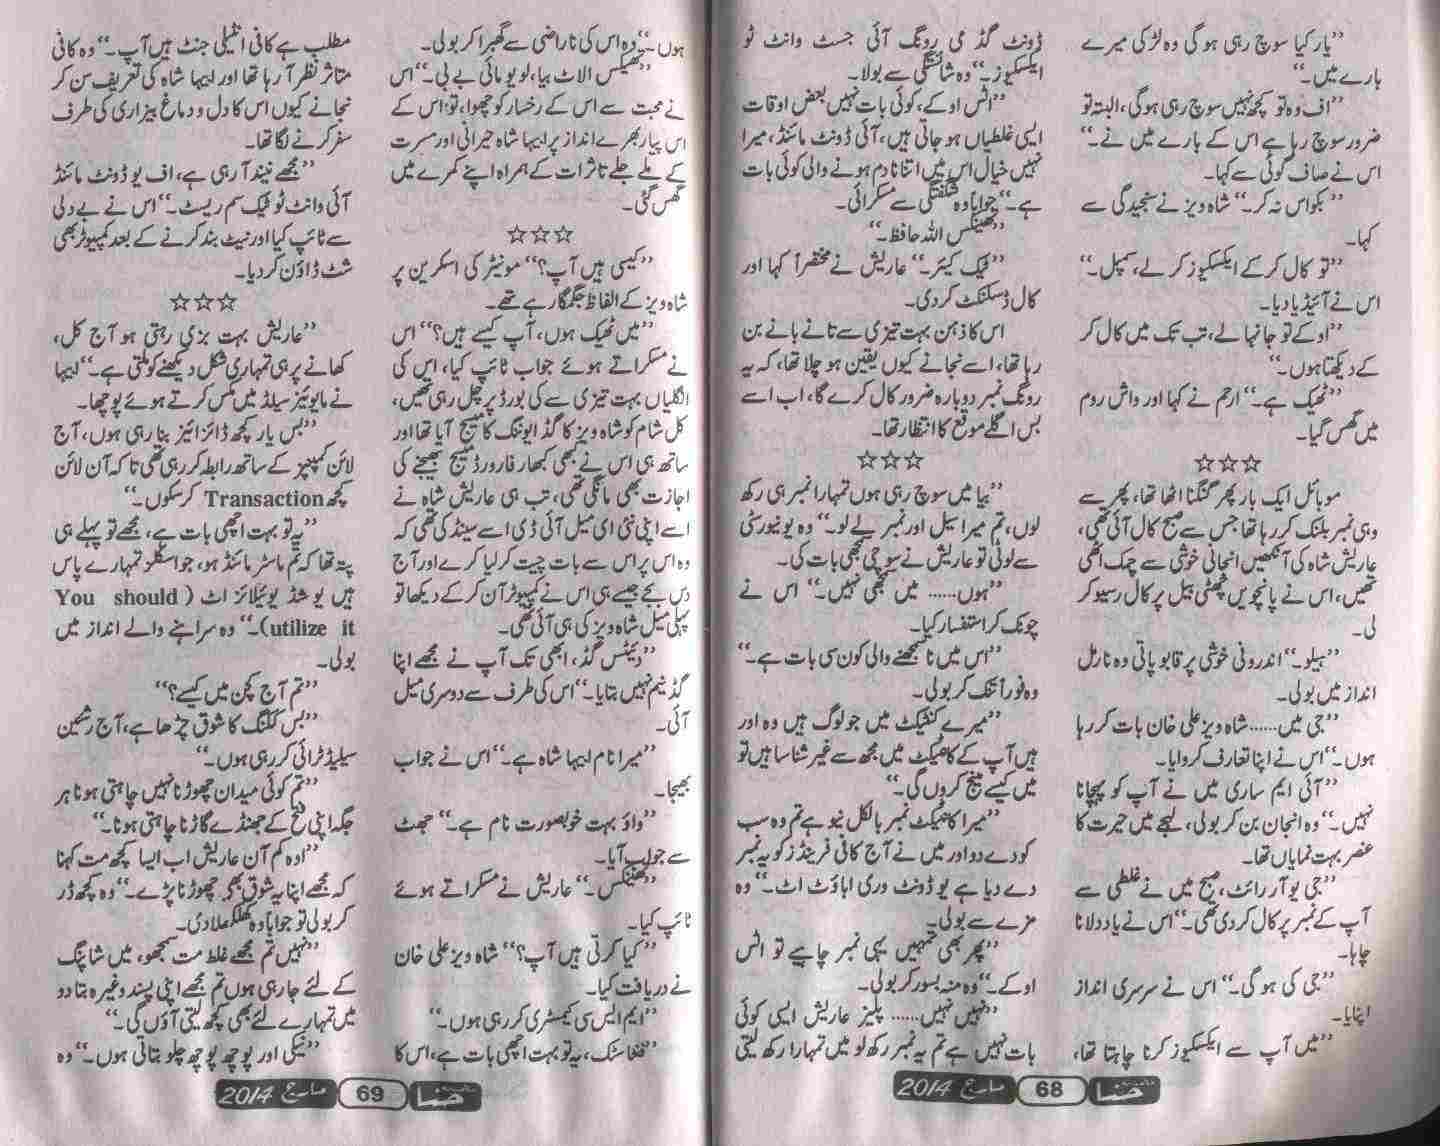 ”یار کیا سوچ رہی ہو گی وہ لڑکی میرے
بارے میں۔“
”اف وہ تو کچھ نہیں سوچ رہی ہو گی، البتہ تو
ضرور سوچ رہا ہے اس کے بارے میں نے۔“
اس نے صاف گوئی سے کہا۔
”بکواس نہ کر۔“ شاہ ویز نے سنجیدگی سے
کہا۔
”تو کال کر کے ایکسکیوز کر لے، سمپل۔“
اس نے آئیڈیا دیا۔
”اوکے تو جا نہا لے، تب تک میں کال کر
کے دیکھتا ہوں۔“
”ٹھیک ہے۔“ ارحم نے کہا اور واش روم
میں گھس گیا۔
☆☆☆
موبائل ایک بار پھر گنگنا اٹھا تھا، پھر سے
وہی نمبر بلنک کر رہا تھا جس سے صبح کال آئی تھی،
عاریش شاہ کی آنکھیں انجانی خوشی سے چمک اٹھی
تھیں، اس نے پانچویں چھٹی بیل پر کال رسیو کر
لی۔
”ہیلو۔“ اندرونی خوشی پر قابو پاتی وہ نارمل
انداز میں بولی۔
”جی میں...... شاہ ویز علی خان بات کر رہا
ہوں۔“ اس نے اپنا تعارف کروایا۔
”آئی ایم ساری میں نے آپ کو پہچانا
نہیں۔“ وہ انجان بن کر بولی، لہجے میں حیرت کا
عنصر بہت نمایاں تھا۔
”جی یو آر رائٹ، صبح میں نے غلطی سے
آپ کے نمبر پر کال کر دی تھی۔“ اس نے یاد دلانا
چاہا۔
”جی کی ہو گی۔“ اس نے سرسری انداز
اپنایا۔
”میں آپ سے ایکسکیوز کرنا چاہتا تھا،
ڈونٹ گڈ می رونگ آئی جسٹ وانٹ ٹو
ایکسکیوز۔“ وہ شائستگی سے بولا۔
”اٹس اوکے، کوئی بات نہیں بعض اوقات
ایسی غلطیاں ہو جاتی ہیں، آئی ڈونٹ مائنڈ، میرا
نہیں خیال اس میں اتنا نادم ہونے والی کوئی بات
ہے۔“ جواباً وہ شگفتگی سے مسکرائی۔
”تھینکس اللہ حافظ۔“
”ٹیک کیئر۔“ عاریش نے مختصراً کہا اور
کال ڈسکنکٹ کر دی۔
اس کا ذہن بہت تیزی سے تانے بانے بن
رہا تھا، اسے نجانے کیوں یقین ہو چلا تھا، کہ یہ
رونگ نمبر دوبارہ ضرور کال کرے گا، اب اسے
بس اگلے موقع کا انتظار تھا۔
☆☆☆
”بیا میں سوچ رہی ہوں تمہارا نمبر ہی رکھ
لوں، تم میرا سیل اور نمبر لے لو۔“ وہ یونیورسٹی
سے لوٹی تو عاریش نے سوچی تھی بات کی۔
”ہوں...... میں سمجھی نہیں۔“ اس نے
چونک کر استفسار کیا۔
”اس میں نا سمجھنے والی کون سی بات ہے۔“
وہ فوراً تنک کر بولی۔
”میرے کنٹیکٹ میں جو لوگ ہیں وہ اور
ہیں آپ کے کانٹیکٹ میں مجھ سے غیر شناسا ہیں تو
میں کیسے مینج کروں گی۔“
”میرا کانٹیکٹ نمبر بالکل نیو ہے تم وہ سب
کو دے دو اور میں نے آج کافی فرینڈز کو یہ نمبر
دے دیا ہے یو ڈونٹ وری اباؤٹ اٹ۔“ وہ
مزے سے بولی۔
”پھر بھی تمہیں یہی نمبر چاہیے تو اٹس
اوکے۔“ وہ منہ بسور کر بولی۔
”نہیں نہیں...... پلیز عاریش ایسی کوئی
بات نہیں ہے تم یہ نمبر رکھ لو میں تمہارا رکھ لیتی
حنا 68 مارچ 2014
ہوں۔“ وہ اس کی ناراضی سے گھبرا کر بولی۔
”تھینکس الاٹ بیا، لو یو مائی بے بی۔“ اس
نے محبت سے اس کے رخسار کو چھوا، تو اس کے
اس پیار بھرے انداز پر ایہا شاہ حیرانی اور مسرت
کے ملے جلے تاثرات کے ہمراہ اپنے کمرے میں
گھس گئی۔
☆☆☆
”کیسی ہیں آپ؟“ مونیٹر کی اسکرین پر
شاہ ویز کے الفاظ جگمگا رہے تھے۔
”میں ٹھیک ہوں، آپ کیسے ہیں؟“ اس
نے مسکراتے ہوئے جواب ٹائپ کیا، اس کی
انگلیاں بہت تیزی سے کی بورڈ پر چل رہی تھیں،
کل شام کو شاہ ویز کا گڈ ایوننگ کا میسج آیا تھا اور
ساتھ ہی اس نے کبھی کبھار فارورڈ میسج بھیجنے کی
اجازت بھی مانگی تھی، تب ہی عاریش شاہ نے
اسے اپنی نئی ای میل آئی ڈی اسے سینڈ کی تھی کہ
وہ اس پر اس سے بات چیت کر لیا کرے اور آج
دس بجے جیسے ہی اس نے کمپیوٹر آن کر کے دیکھا تو
پہلی میل شاہ ویز کی ہی آئی تھی۔
”دیٹس گڈ، ابھی تک آپ نے مجھے اپنا
گڈ نیم نہیں بتایا۔“ اس کی طرف سے دوسری میل
آئی۔
”میرا نام ایہا شاہ ہے۔“ اس نے جواب
بھیجا۔
”واؤ بہت خوبصورت نام ہے۔“ جھٹ
سے جواب آیا۔
”تھینکس۔“ عاریش نے مسکراتے ہوئے
ٹائپ کیا۔
”کیا کرتی ہیں آپ؟“ شاہ ویز علی خان
نے دریافت کیا۔
”ایم ایس سی کیمسٹری کر رہی ہوں۔“
”فنٹاسٹک، یہ تو بہت اچھی بات ہے، اس کا
مطلب ہے کافی انٹیلی جنٹ ہیں آپ۔“ وہ کافی
متاثر نظر آ رہا تھا اور ایہا شاہ کی تعریف سن کر
نجانے کیوں اس کا دل و دماغ بیزاری کی طرف
سفر کرنے لگا تھا۔
”مجھے نیند آ رہی ہے، اف یو ڈونٹ مائنڈ
آئی وانٹ ٹو ٹیک سم ریسٹ۔“ اس نے بے دلی
سے ٹائپ کیا اور نیٹ بند کرنے کے بعد کمپیوٹر بھی
شٹ ڈاؤن کر دیا۔
☆☆☆
”عاریش بہت بزی رہتی ہو آج کل،
کھانے پر ہی تمہاری شکل دیکھنے کو ملتی ہے۔“ ایہا
نے مایونیز سیلڈ میں مکس کرتے ہوئے پوچھا۔
”بس یار کچھ ڈائزائنز بنا رہی ہوں، آج
لائن کمپنیز کے ساتھ رابطہ کر رہی تھی تا کہ آن لائن
کچھ Transaction کر سکوں۔“
”یہ تو بہت اچھی بات ہے، مجھے تو پہلے ہی
پتہ تھا کہ تم ماسٹر مائنڈ ہو، جو اسکلز تمہارے پاس
ہیں یو شڈ یوٹیلائز اٹ (You should
utilize it)۔“ وہ سراہنے والے انداز میں
بولی۔
”تم آج کچن میں کیسے؟“
”بس ککنگ کا شوق چڑھا ہے، آج رشین
سیلیڈ ٹرائی کر رہی ہوں۔“
”تم کوئی میدان چھوڑنا نہیں چاہتی ہو نا ہر
جگہ اپنی فتح کے جھنڈے گاڑنا چاہتی ہو نا۔“
”او کم آن عاریش اب ایسا کچھ مت کہنا
کہ مجھے اپنا یہ شوق بھی چھوڑنا پڑے۔“ وہ کچھ ڈر
کر بولی تو جواباً وہ کھلکھلا دی۔
”نہیں تم مجھے غلط مت سمجھو، میں شاپنگ
کے لئے جا رہی ہوں تم مجھے اپنی پسند وغیرہ بتا دو
میں تمہارے لئے بھی کچھ لیتی آؤں گی۔“
”نیکی اور پوچھ پوچھ چلو بتاتی ہوں۔“ وہ
حنا 69 مارچ 2014